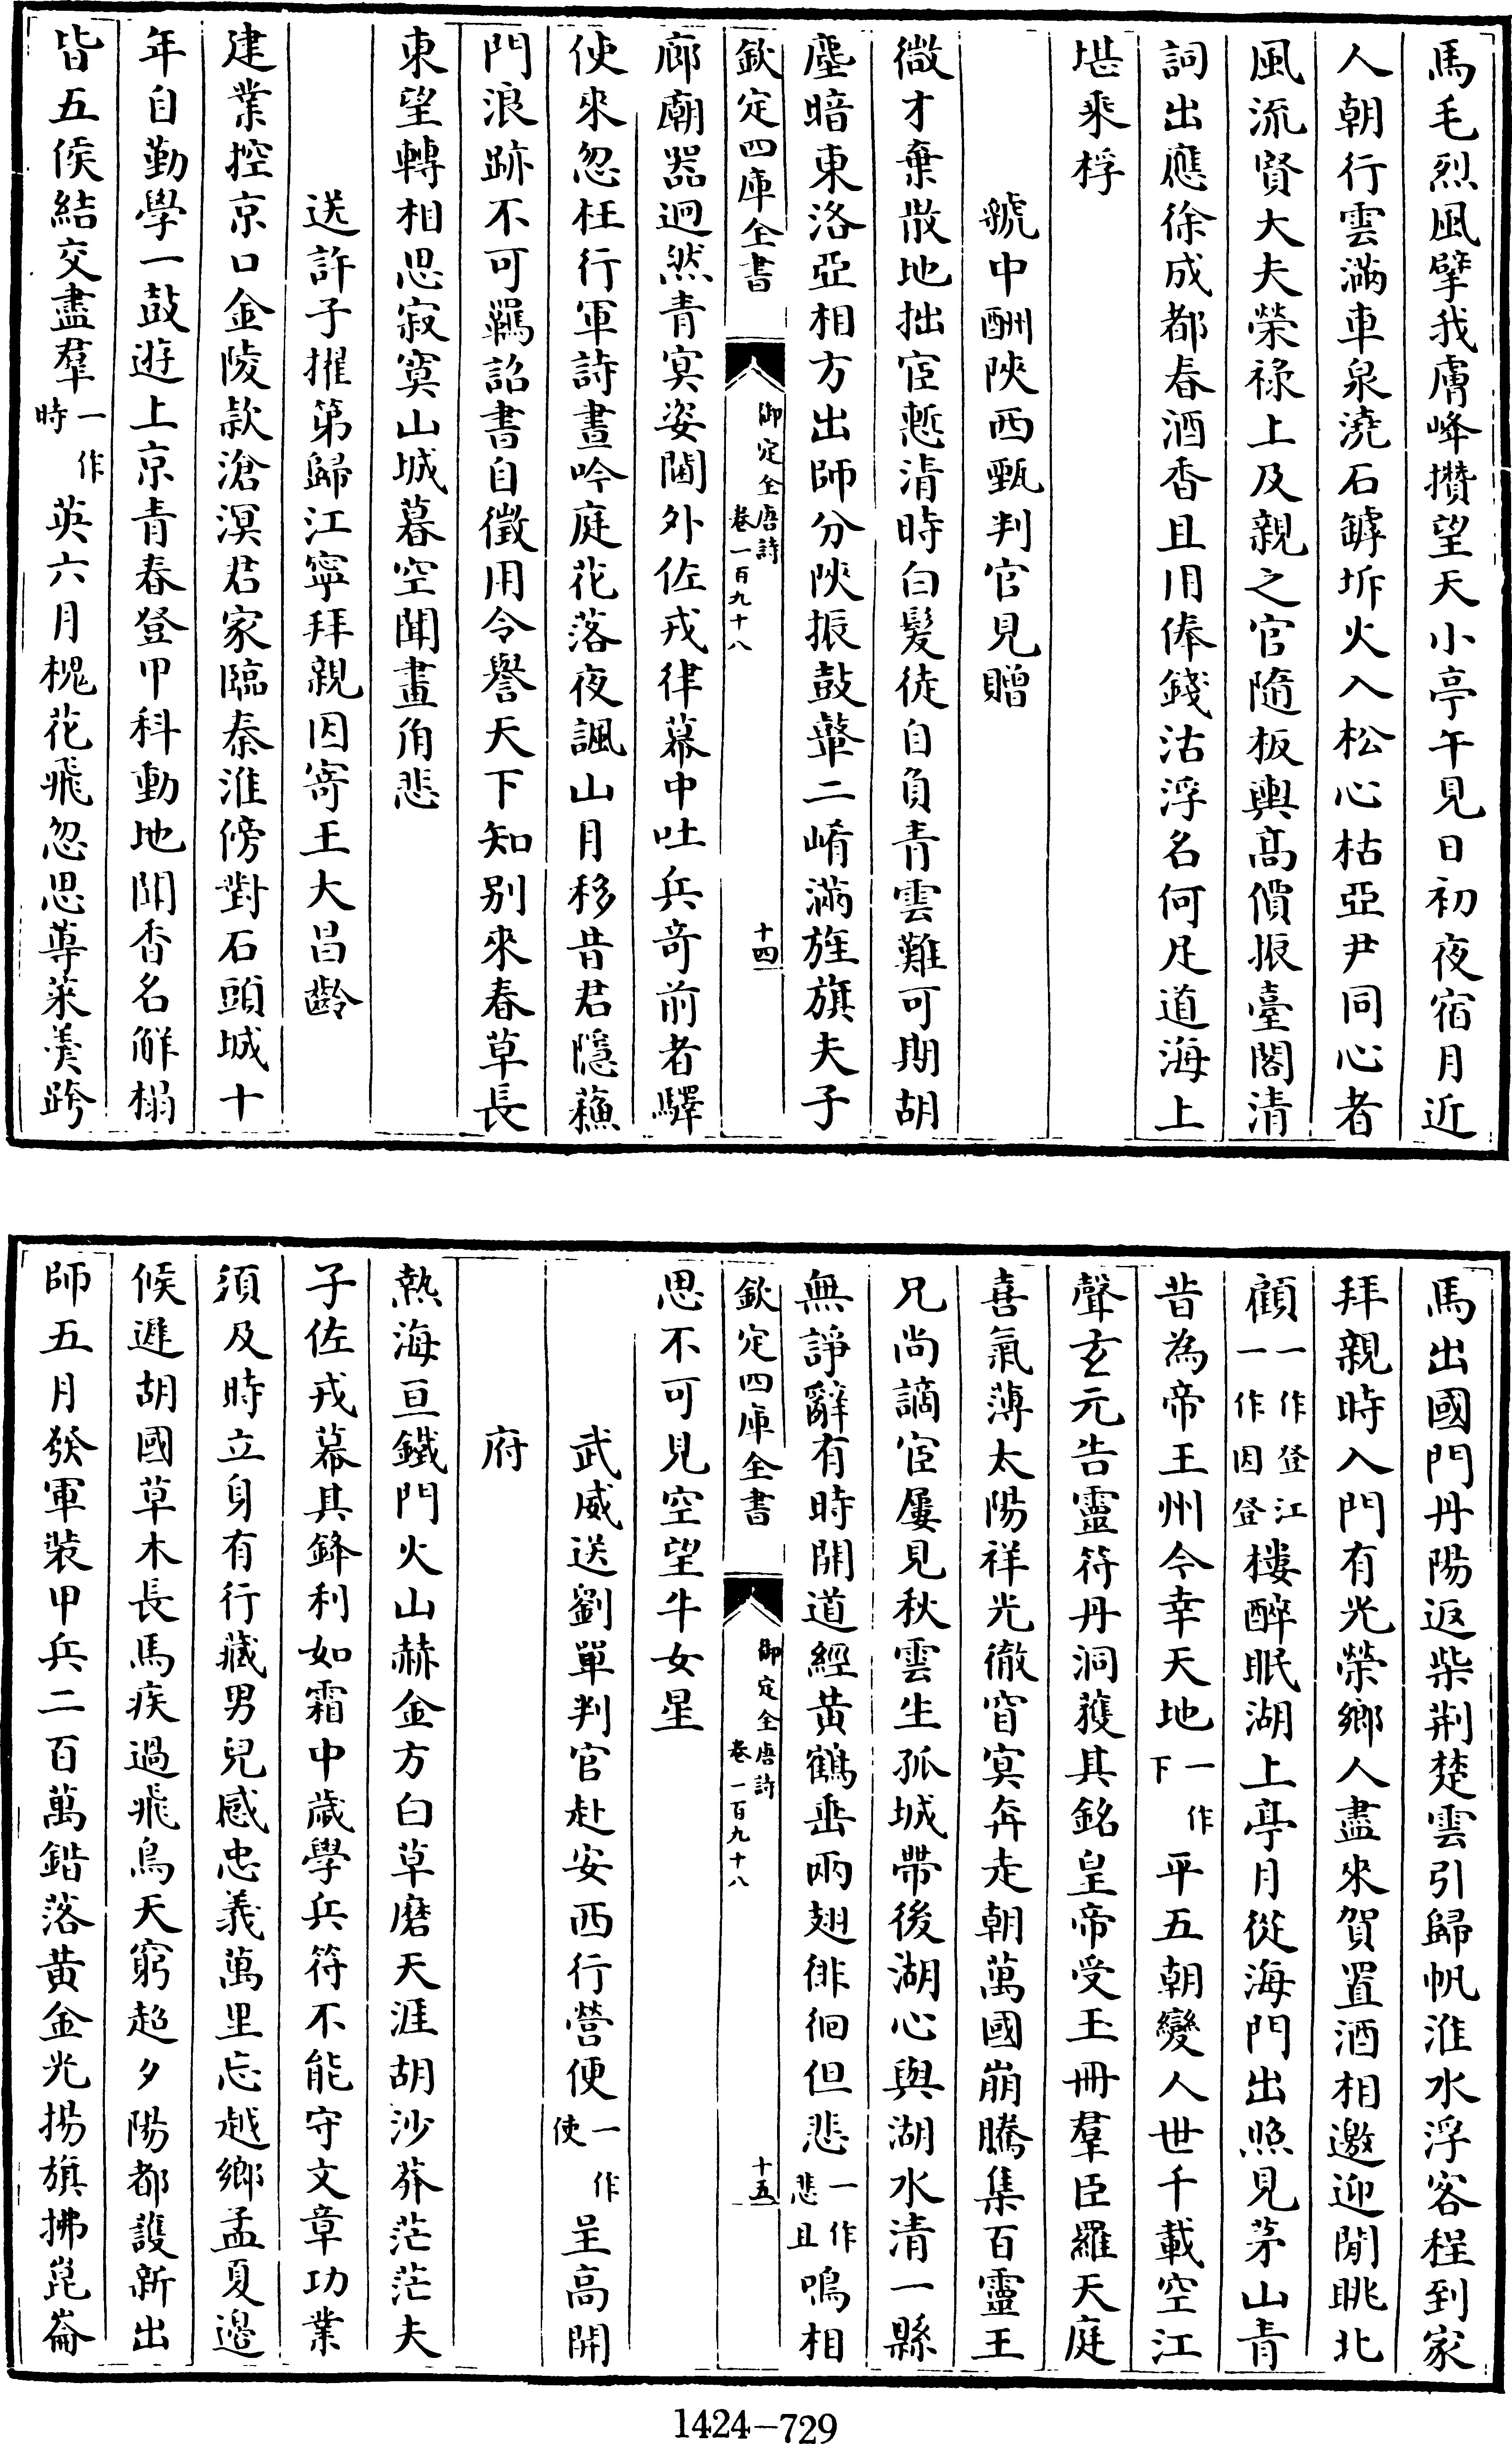 馬毛烈風擘我膚峰攢望天小亭午見日初夜宿月近
人朝行雲滿車泉澆石罅坼火入松心枯亞尹同心者
風流賢大夫榮祿上及親之官隨板輿高價振臺閣清
詞出應徐成都春酒香且用俸錢沽浮名何足道海上
堪乘桴
虢中酬陜西甄判官見贈
微才棄散地拙宦慙清時白髮徒自負青雲難可期胡
塵暗東洛亞相方出師分陜振鼓鼙二崤滿旌旗夫子
欽定四庫全書 御定全唐詩 卷一百九十八 十四
廊廟器迥然青冥姿閫外佐戎律幕中吐兵奇前者驛
使來忽枉行軍詩晝吟庭花落夜諷山月移昔君隱蘓
門浪跡不可羈詔書自徵用令譽天下知別來春草長
東望轉相思寂寞山城暮空聞畫角悲
送許子擢第歸江寧拜親因寄王大昌齡
建業控京口金陵款滄溟君家臨秦淮傍對石頭城十
年自勤學一鼓遊上京青春登甲科動地聞香名解榻
皆五侯結交盡羣一作時英六月槐花飛忽思蓴菜羹跨
馬出國門丹陽返柴荆楚雲引歸帆淮水浮客程到家
拜親時入門有光榮鄉人盡來賀置酒相邀迎閒眺北
顧一作登江一作因登樓醉眠湖上亭月從海門出照見茅山青
昔為帝王州今幸天地一作下平五朝變人世千載空江
聲玄元告靈符丹洞獲其銘皇帝受玉冊羣臣羅天庭
喜氣薄太陽祥光徹窅冥奔走朝萬國崩騰集百靈王
兄尚謫宦屢見秋雲生孤城帶後湖心與湖水清一縣
無諍辭有時開道經黃鶴垂兩翅徘徊但悲一作悲且鳴相
欽定四庫全書 御定全唐詩 卷一百九十八 十五
思不可見空望牛女星
武威送劉單判官赴安西行營便一作使呈高開
府
熱海亘鐵門火山赫金方白草磨天涯胡沙莽茫茫夫
子佐戎幕其鋒利如霜中歲學兵符不能守文章功業
須及時立身有行藏男兒感忠義萬里忘越鄉孟夏邊
候遲胡國草木長馬疾過飛鳥天窮超夕陽都護新出
師五月發軍裝甲兵二百萬錯落黃金光揚旗拂崑崙
1424-729